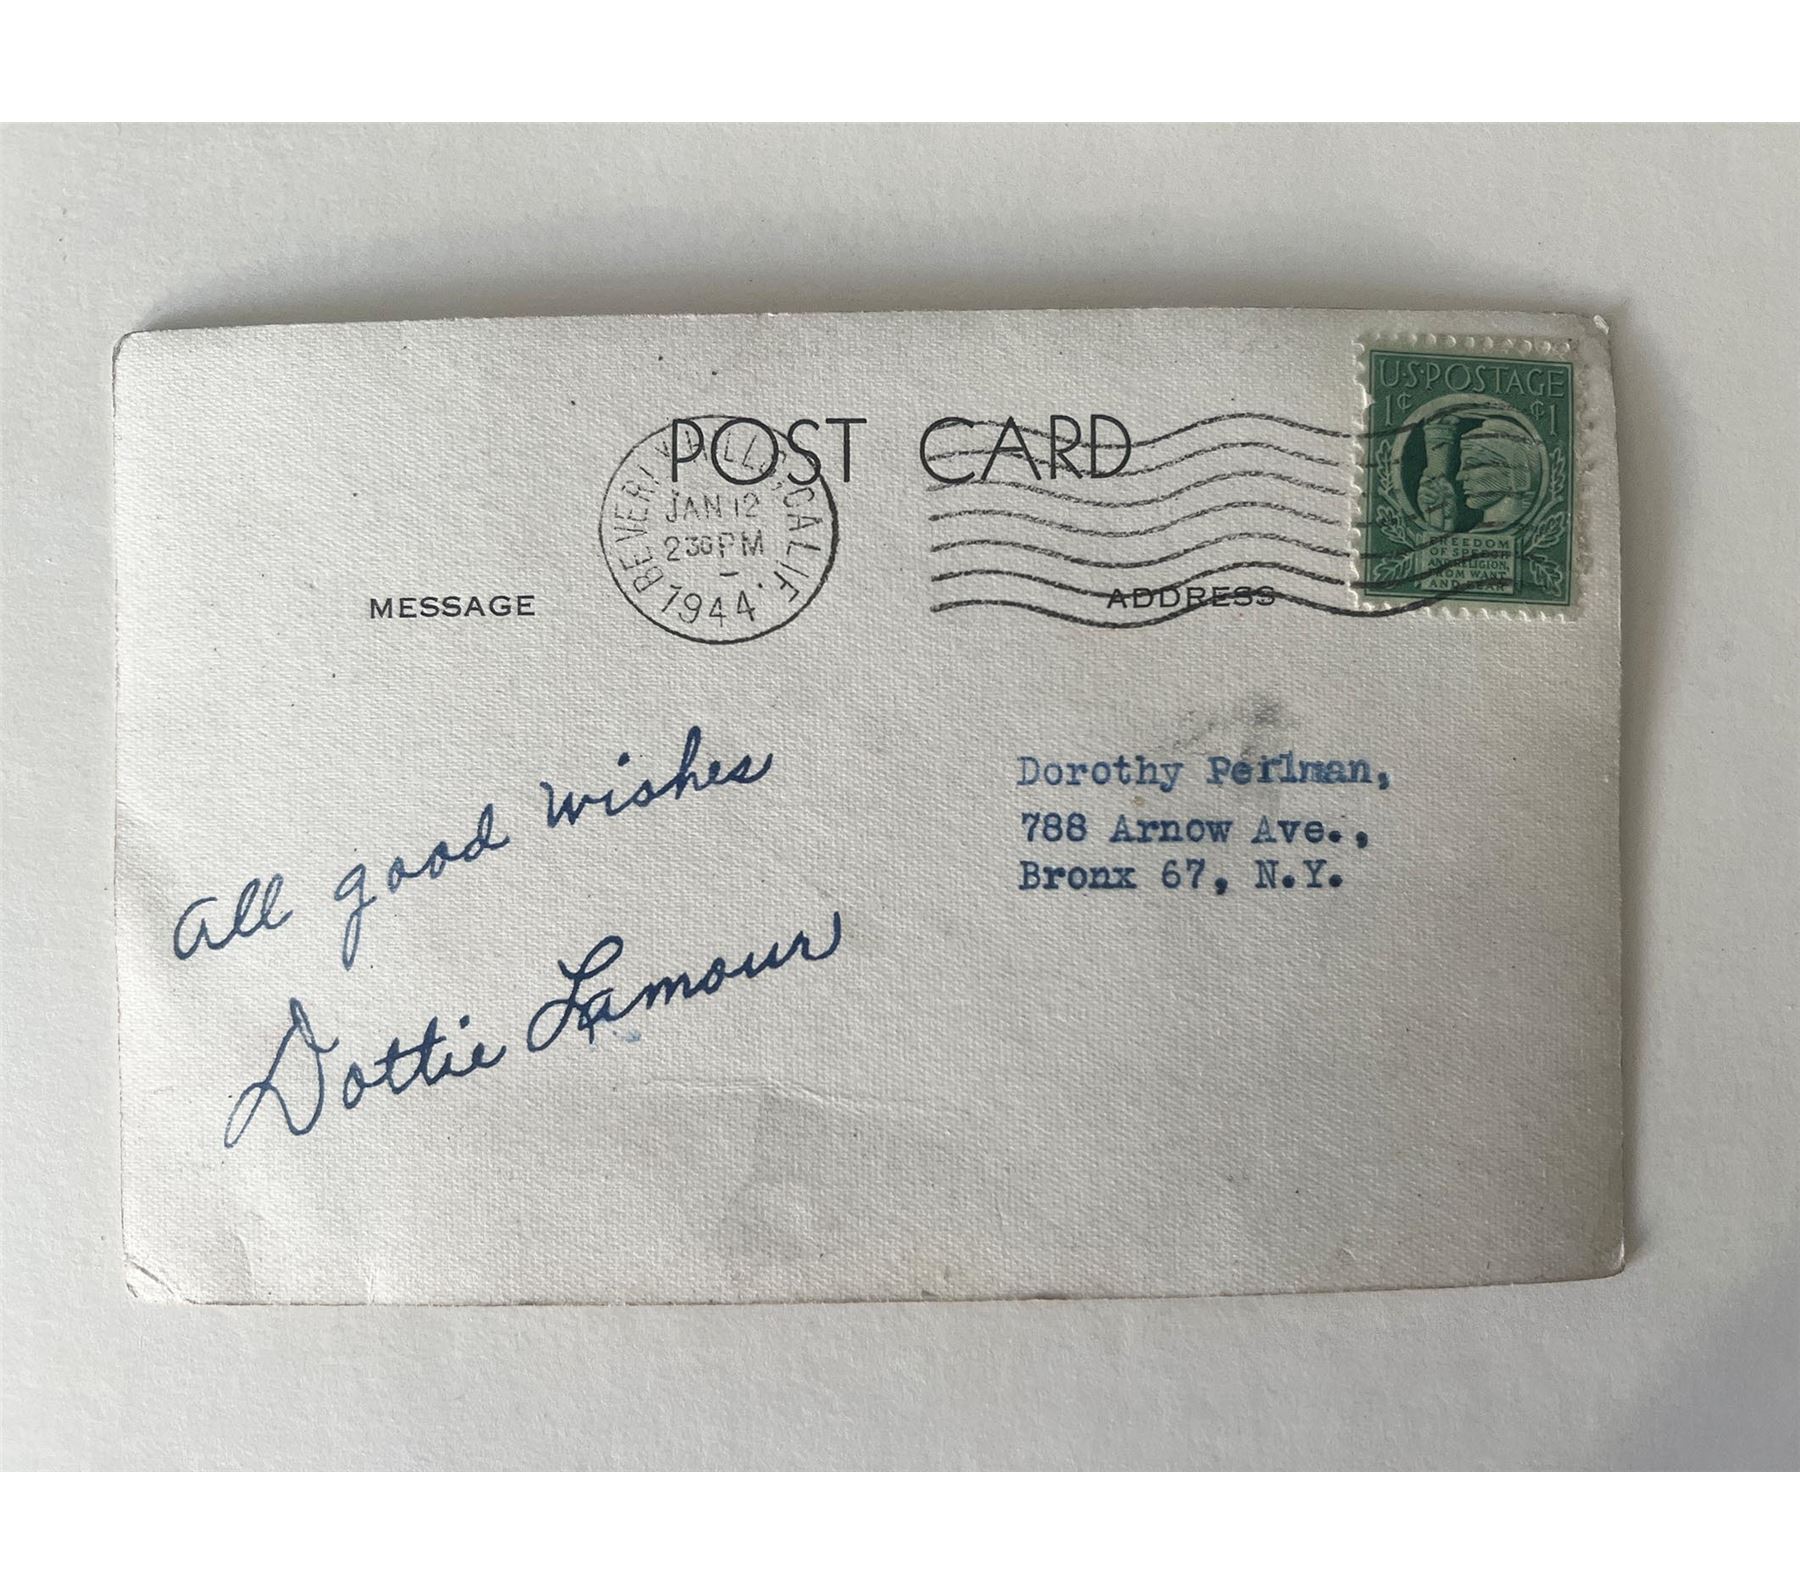 POST CARD
BEVERLY HILLS, CALIF.
JAN 12
2 30 PM
1944
U.S. POSTAGE
1¢ ¢1
FREEDOM
OF SPEECH
AND RELIGION,
FROM WANT
AND FEAR
MESSAGE
ADDRESS
all good wishes
Dottie Lamour
Dorothy Perlman,
788 Arnow Ave.,
Bronx 67, N.Y.